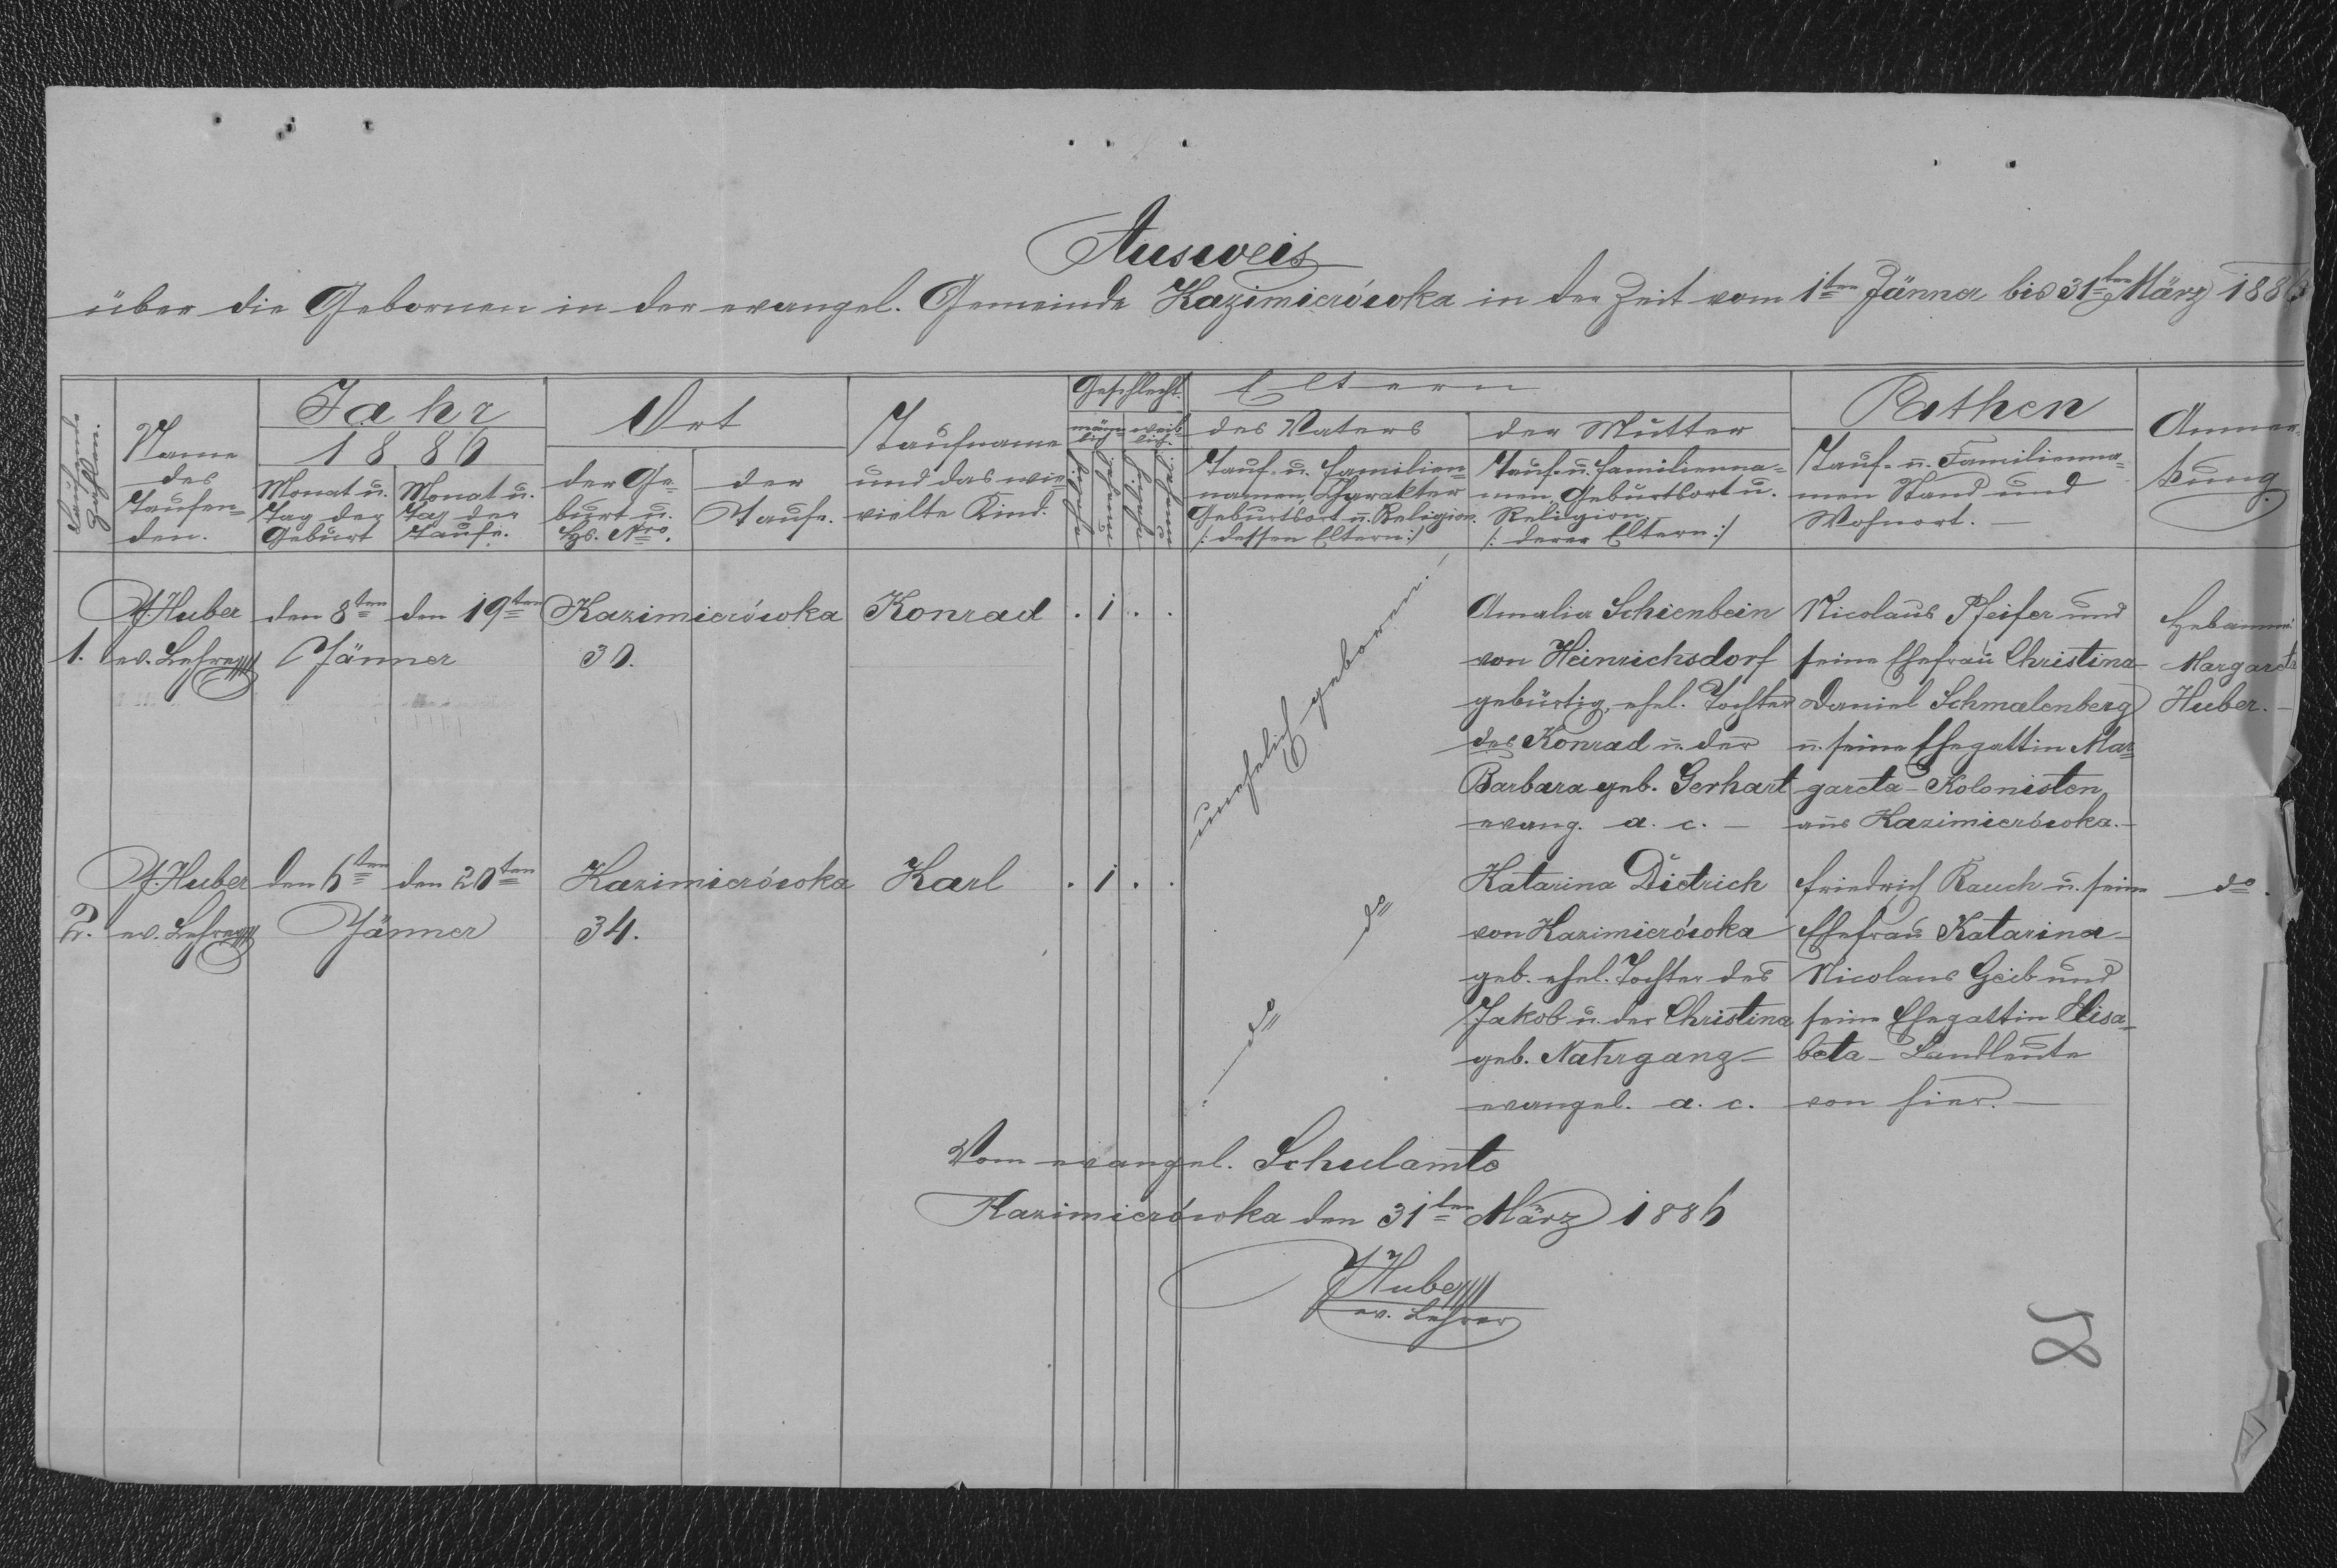 Ausweis
über die Gebornen in der evangel. Gemeinde Kazimierówka in der Zeit vom 1ten Jänner bis 31ten März 1886
Laufende Zahlen.
Name
des
Taufen-
den.
Jahr
1886
Monat u.
Tag der
Geburt
Monat u.
Tag der
Taufe.
Ort
der Ge-
burt u.
Hs. Nro.
der
Taufe.
Taufname
und das wie-
vielte Kind.
Geschlecht.
männ-
lich
weib-
lich.
Eltern
des Vaters
Tauf- u. Familien-
namen, Charakter
Geburtsort u. Religion.
/: dessen Eltern :/
der Mutter
Tauf- u. Familienna-
men, Geburtsort u.
Religion.
/: deren Eltern :/
Pathen
Tauf- u. Familienna-
men Stand und
Wohnort. —
Anmer-
kung.
1.
J. Huber
ev. Lehrer
den 8ten
den 19ten
Jänner
Kazimierówka
30.
Konrad
. 1 . .
unehelich geboren. —
Amalia Schienbein
von Heinrichsdorf
gebürtig, ehel. Tochter
des Konrad u. der
Barbara geb. Gerhart
evang. a. c. —
Nicolaus Pfeifer und
seine Ehefrau Christina
Daniel Schmalenberg
u. seine Ehegattin Mar-
gareta – Kolonisten
aus Kazimierówka. —
Hebamme:
Margareta
Huber. —
2.
J. Huber
ev. Lehrer
den 6ten
den 20ten
Jänner
Kazimierówka
34.
Karl
. 1 . .
— do — do
Katarina Dietrich
von Kazimierówka
geb. ehel. Tochter des
Jakob u. der Christina
geb. Nahrgang —
evangel. a. c.
Friedrich Rauch u. seine
Ehefrau Katarina
Nicolaus Geib und
seine Ehegattin Elisa-
beta – Landleute
von hier. —
do.
Vom evangel. Schulamte
Kazimierówka den 31ten März 1886
J Huber
ev. Lehrer
58